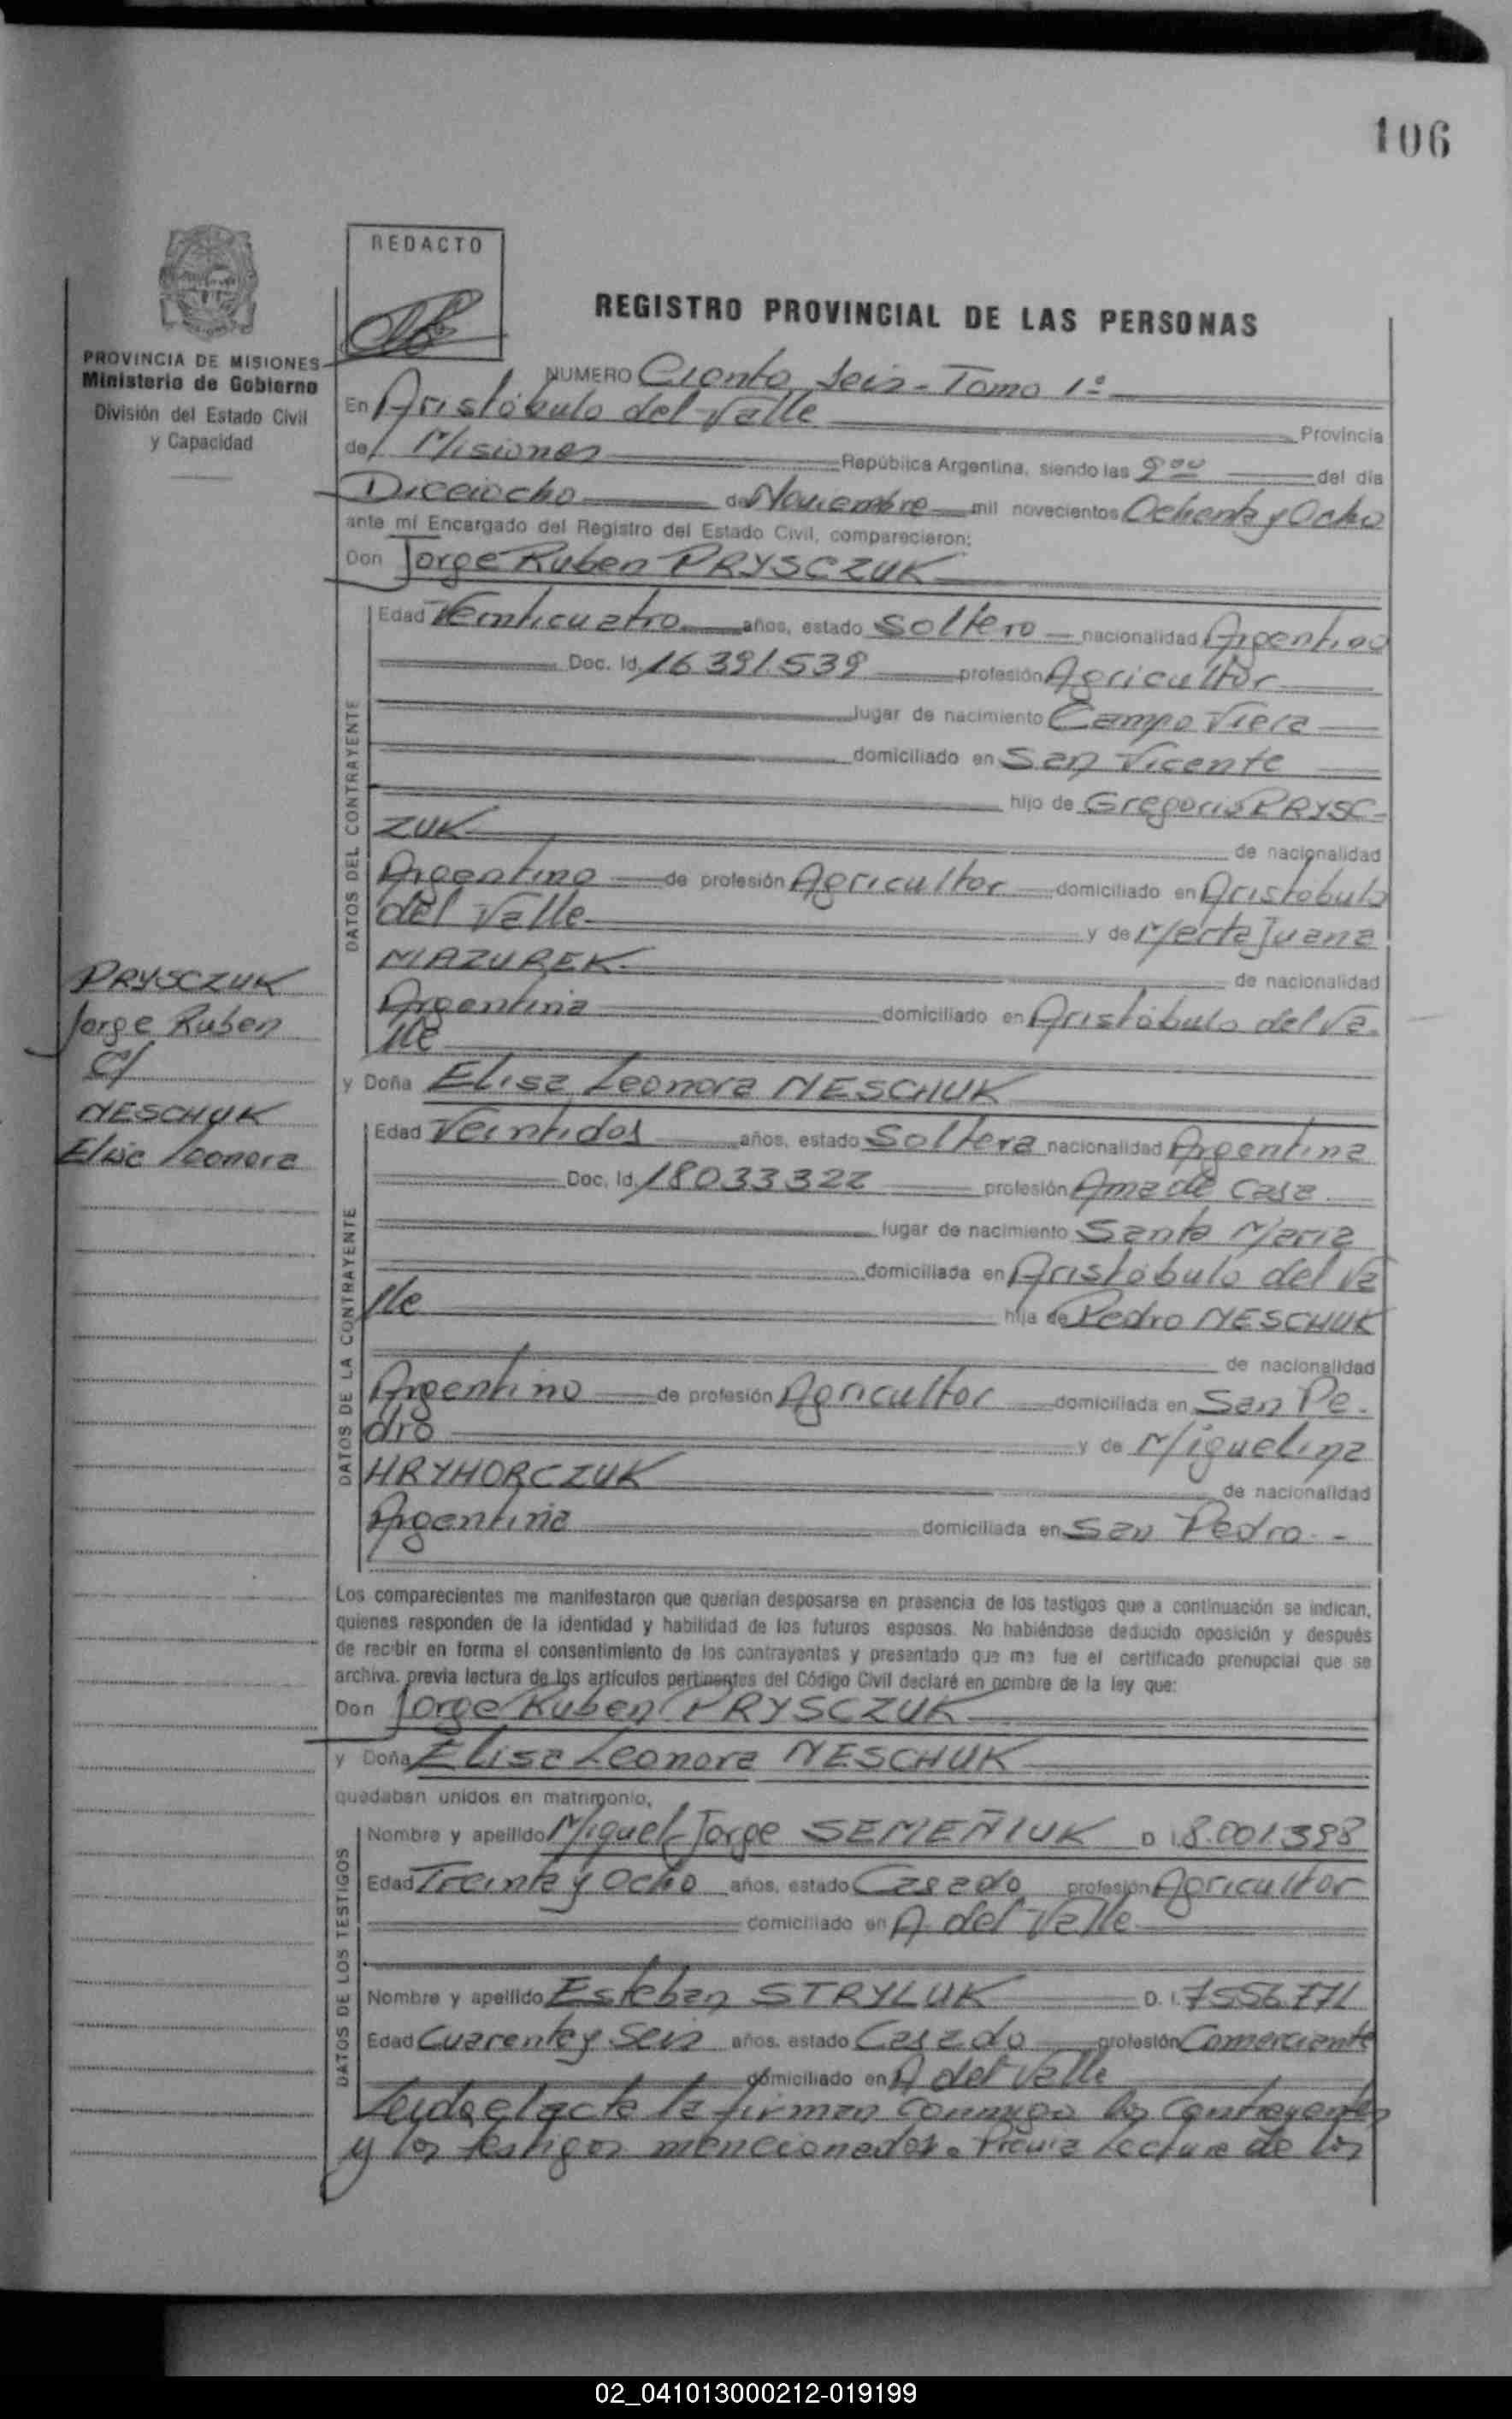 106
REDACTO
REGISTRO PROVINCIAL DE LAS PERSONAS
PROVINCIA DE MISIONES
Ministerio de Gobierno
División del Estado Civil
y Capacidad
NUMERO Ciento Seis - Tomo 1º
En Aristóbulo del Valle Provincia
de Misiones República Argentina, siendo las 9⁰⁰ del día
Dieciocho de Noviembre mil novecientos Ochenta y Ocho
ante mí Encargado del Registro del Estado Civil, comparecieron:
Don Jorge Ruben PRYSCZUK
DATOS DEL CONTRAYENTE
Edad Veinticuatro años, estado Soltero nacionalidad Argentino
Doc. Id. 16.391.539 profesión Agricultor
lugar de nacimiento Campo Viera
domiciliado en San Vicente
hijo de Gregorio PRYSC-
ZUK de nacionalidad
Argentino de profesión Agricultor domiciliado en Aristóbulo
del Valle y de Marta Juana
MAZUREK de nacionalidad
Argentina domiciliado en Aristóbulo del Va-
lle
PRYSCZUK
Jorge Ruben
C/
NESCHUK
Elisa Leonora
y Doña Elisa Leonora NESCHUK
DATOS DE LA CONTRAYENTE
Edad Veintidos años, estado Soltera nacionalidad Argentina
Doc. Id. 18033322 profesión Ama de Casa
lugar de nacimiento Santa Maria
domiciliada en Aristóbulo del Va
lle hija de Pedro NESCHUK
de nacionalidad
Argentino de profesión Agricultor domiciliada en San Pe-
dro y de Miguelina
HRYHORCZUK de nacionalidad
Argentina domiciliada en San Pedro.-
Los comparecientes me manifestaron que querían desposarse en presencia de los testigos que a continuación se indican,
quienes responden de la identidad y habilidad de los futuros esposos. No habiéndose deducido oposición y después
de recibir en forma el consentimiento de los contrayentes y presentado que me fue el certificado prenupcial que se
archiva, previa lectura de los artículos pertinentes del Código Civil declaré en nombre de la ley que:
Don Jorge Ruben PRYSCZUK
y Doña Elisa Leonora NESCHUK
quedaban unidos en matrimonio,
DATOS DE LOS TESTIGOS
Nombre y apellido Miguel Jorge SEMEÑIUK D.I. 8.001.398
Edad Treinta y Ocho años, estado Casado profesión Agricultor
domiciliado en A. del Valle
Nombre y apellido Esteban STRYLUK D.I. 7556771
Edad Cuarenta y Seis años, estado Casado profesión Comerciante
domiciliado en A del Valle
Leida el acta la firman conmigo los contrayentes
y los testigos mencionados. Previa Lectura de los
02_041013000212-019199